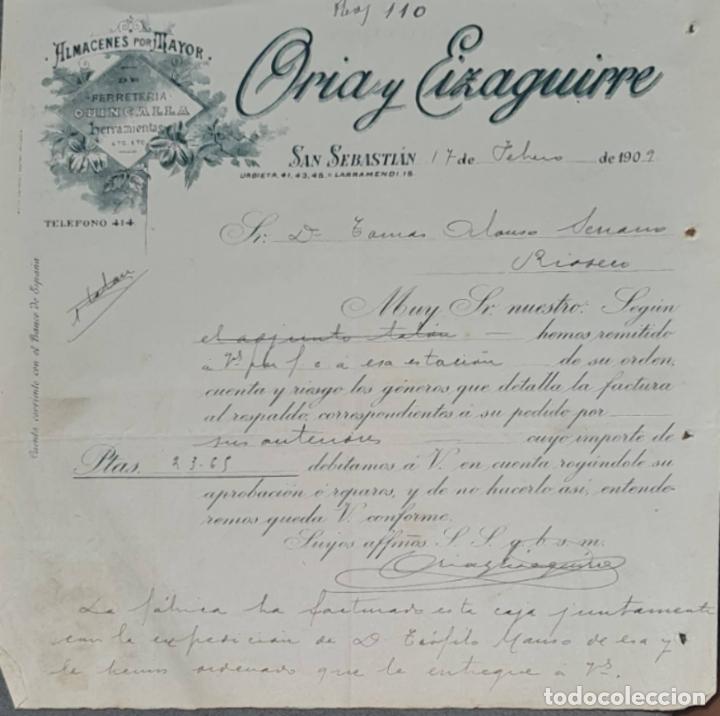 110
ALMACENES POR MAYOR
DE
FERRETERIA
QUINCALLA
herramientas
ETC. ETC.
TELEFONO 414
Oria y Eizaguirre
SAN SEBASTIÁN 17 de Febrero de 1909
URBIETA, 41, 43, 45 Y LARRAMENDI, 15
Sr. Dn Tomas Alonso Serrano
Rioseco
1 talon
Cuenta corriente con el Banco de España
Muy Sr. nuestro: Según
el adjunto talón hemos remitido
á Vs por f c á esa estación de su orden,
cuenta y riesgo los géneros que detalla la factura
al respaldo, correspondientes á su pedido por
sus anteriores cuyo importe de
Ptas. 23.65 debitamos á V. en cuenta rogándole su
aprobación ó reparos, y de no hacerlo así, entende-
remos queda V. conforme.
Suyos affmos. S. S. q. b. s. m.
Oria y Eizaguirre
La fábrica ha facturado esta caja juntamente
con la expedición de D. Teófilo Manso de esa y
le hemos ordenado que la entregue á Vs.
todocoleccion.net